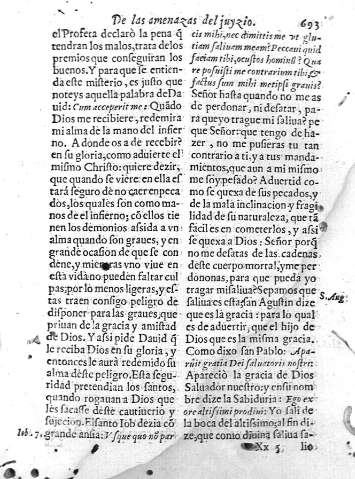 De las amenazas del juyzio. 693
el Profeta declarò la pena q̃
tendran los malos, trata de los
premios que conseguiran los
buenos. Y para que se entien-
da este misterio, es justo que
noteys aquella palabra de Da
uid: Cum acceperit me: Quãdo
Dios me recibiere, redemira
mi alma de la mano del infier
no. A donde os à de recebir?
en su gloria, como aduierte el
mismo Christo: quiere dezir,
que quando se viere en ella es
tarà seguro de no caer en peca
dos, los quales son como ma-
nos de el infierno; cõ ellos tie
nen los demonios assida a vn
alma quando son graues, y en
grande ocasion de que se con
dene, y mientras vno viue en
esta vida no pueden faltar cul
pas; por lo menos ligeras, y es-
tas traen consigo peligro de
disponer para las graues, que
priuan de la gracia y amistad
de Dios. Y assi pide Dauid q̃
le reciba Dios en su gloria, y
entonces le aurà redemido su
alma deste peligro. Esta segu-
ridad pretendian los santos,
quando rogauan a Dios que
les sacasse deste cautiuerio y
sujecion. El santo Iob dezia cõ
grande ansia: Vsque quo nõ par
Iob. 7.
cis mihi, nec dimittis me vt glu-
tiam saliuam meem? Peccaui quid
faciam tibi, o custos hominũ? Qua
re posuisti me contrarium tibi, &
factus sum mihi metipsi grauis?
Señor hasta quando no me as
de perdonar, ni desatar, pa-
ra que yo trague mi saliua? pe
que Señor: que tengo de ha-
zer, no me pusieras tu tan
contrario a ti, y a tus manda-
mientos, que aun a mi mismo
me soy pesado? Aduertid co-
mo se quexa de sus pecados, y
de la mala inclinacion y fragi
lidad de su naturaleza, que tã
faciles en cometerlos, y assi
se quexa a Dios: Señor porq̃
no me desatas de las cadenas
deste cuerpo mortal, y me per
donas, para que pueda yo
tragar mi saliua? Sepamos que
saliua es esta: San Agustin dize
que es la gracia: para lo qual
es de aduertir, que el hijo de
Dios que es la misma gracia.
Como dixo san Pablo: Apa-
ruit gratia Dei saluatoris nostri:
Apareciò la gracia de Dios
Saluador nuestro: y en su nom
bre dize la Sabiduria: Ego ex
ore altissimi prodiui: Yo sali de
la boca del altissimo: al fin di-
ze, que como diuina saliua sa-
S. Aug.
Xx 5 lio